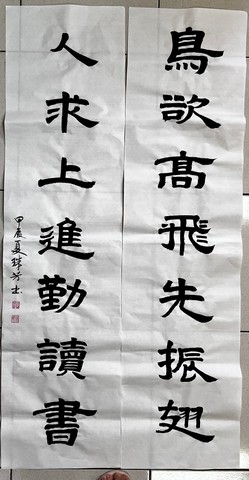 鳥欲髙飛先振翅
人求上進勤讀書
甲辰夏